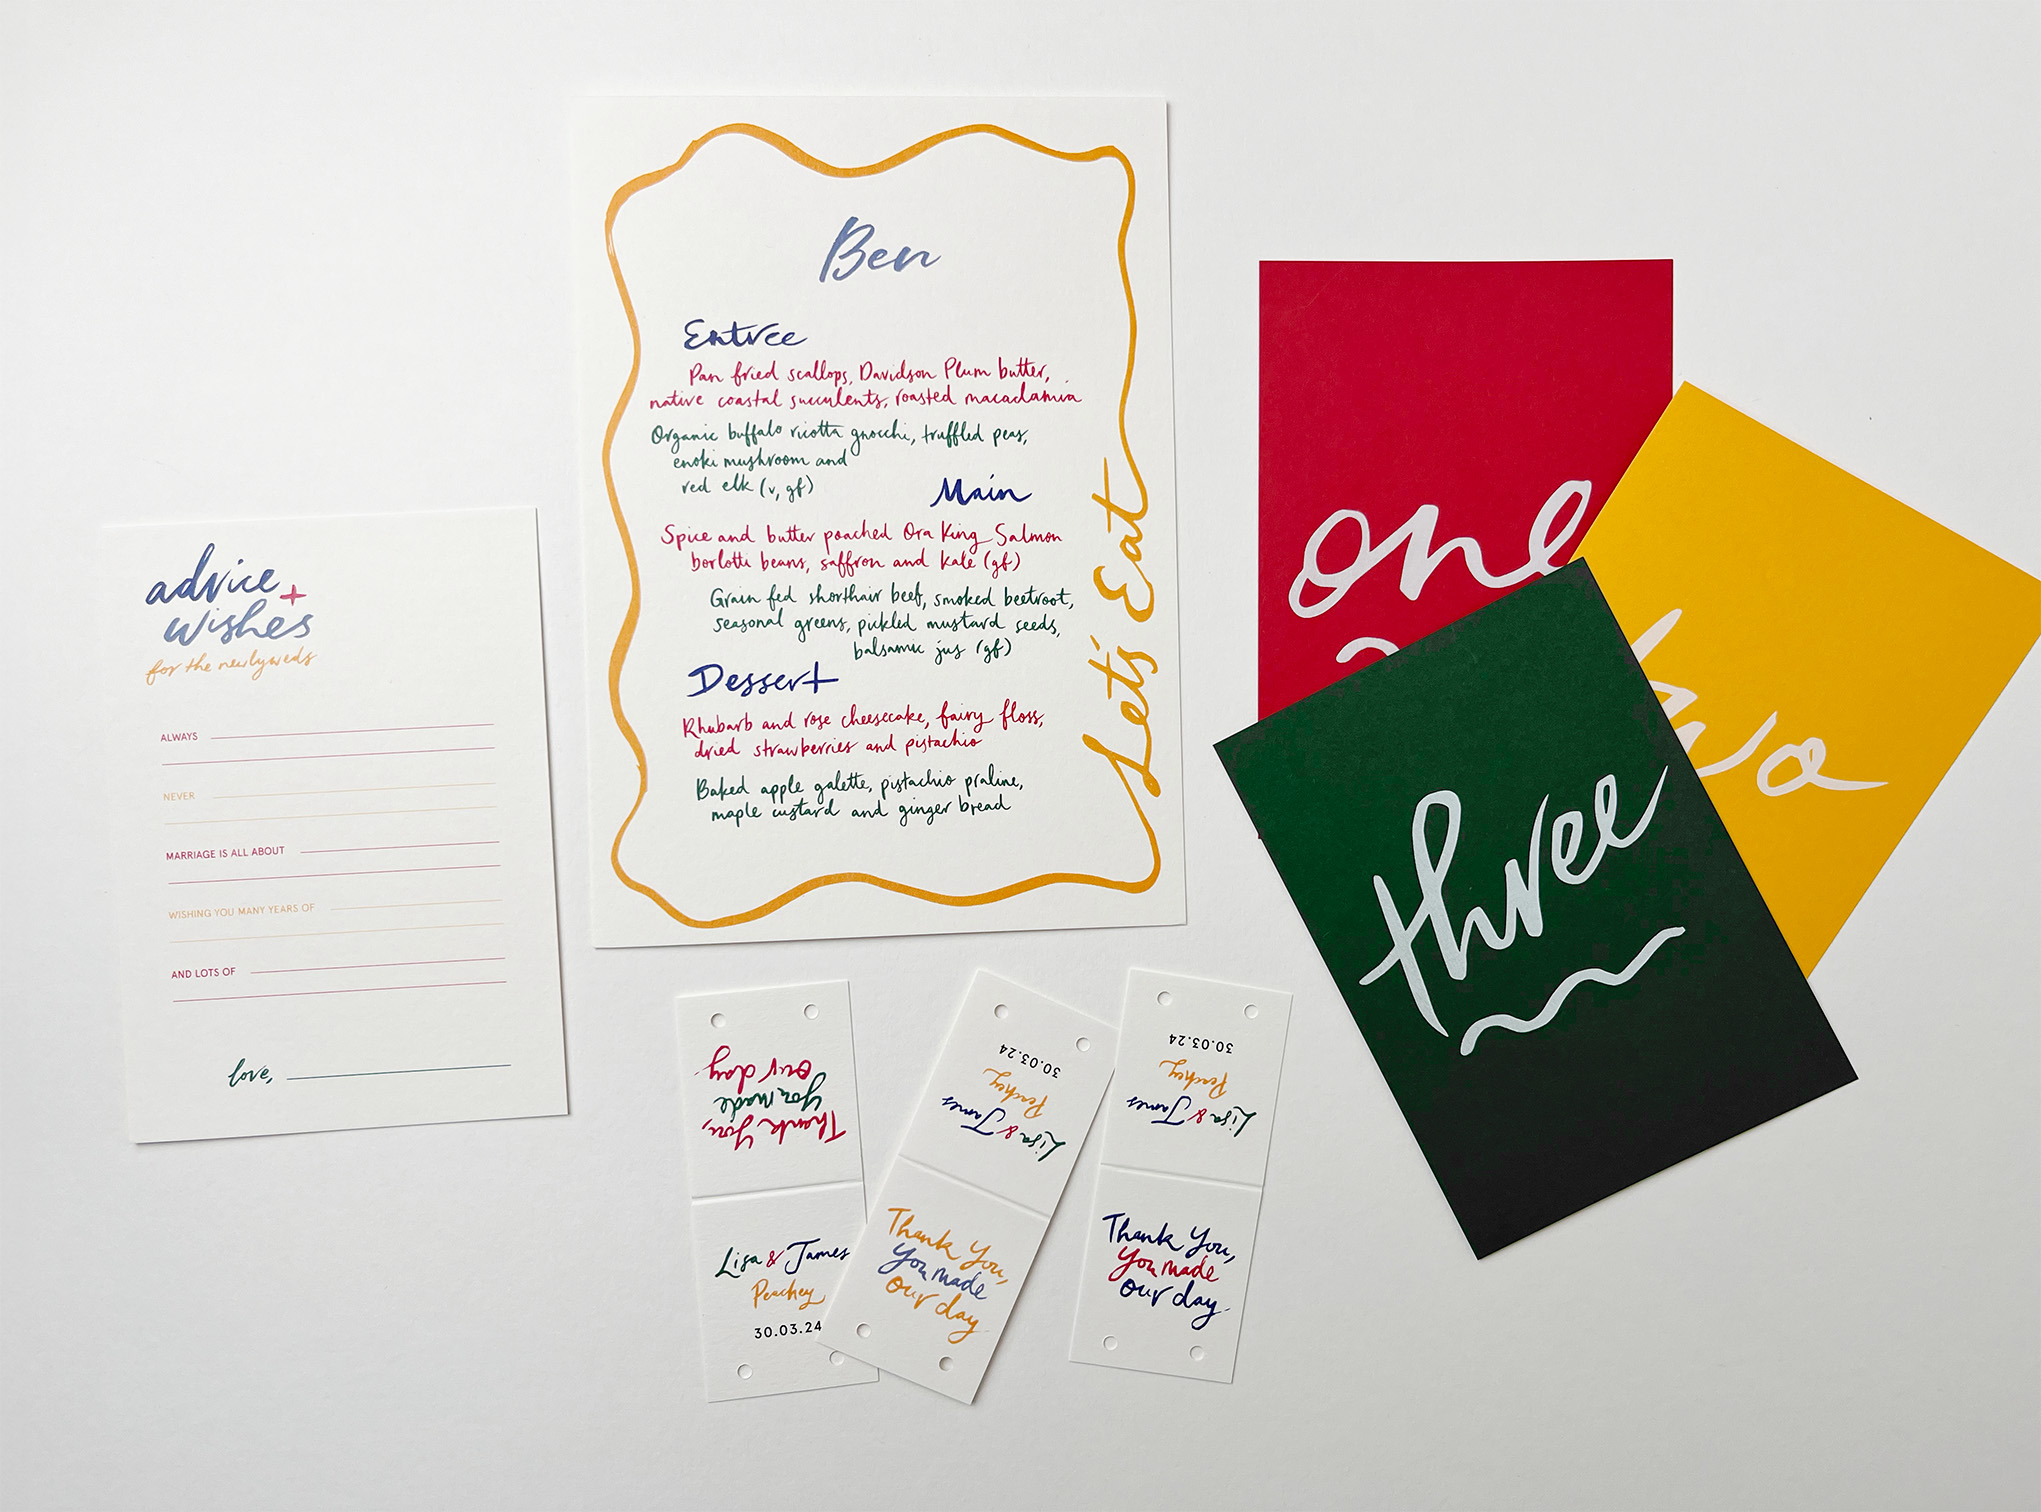 advice +
wishes
for the newlyweds
ALWAYS
NEVER
MARRIAGE IS ALL ABOUT
WISHING YOU MANY YEARS OF
AND LOTS OF
love,
Ben
Entree
Pan fried scallops, Davidson Plum butter,
native coastal succulents, roasted macadamia
Organic buffalo ricotta gnocchi, truffled peas,
enoki mushroom and
red elk (v, gf)
Main
Spice and butter poached Ora King Salmon
borlotti beans, saffron and kale (gf)
Grain fed shorthair beef, smoked beetroot,
seasonal greens, pickled mustard seeds,
balsamic jus (gf)
Dessert
Rhubarb and rose cheesecake, fairy floss,
dried strawberries and pistachio
Baked apple galette, pistachio praline,
maple custard and ginger bread
Let's Eat
one
two
three
Thank You,
You made
our day
Lisa & James
Peachey
30.03.24
Lisa & James
Peachey
30.03.24
Thank You,
You made
our day
Lisa & James
Peachey
30.03.24
Thank You,
You made
our day.